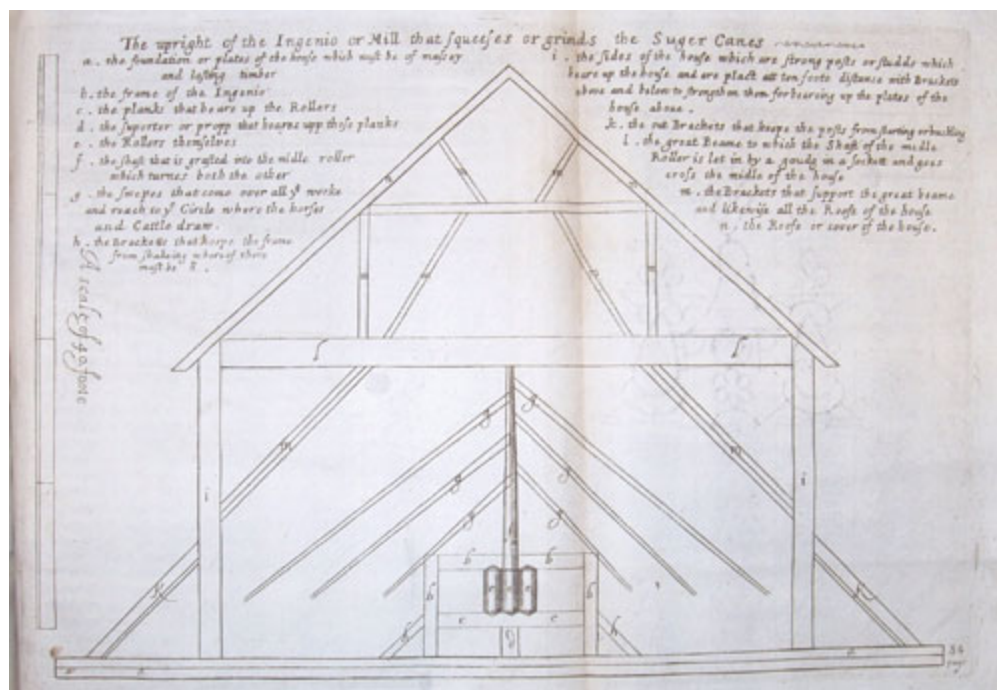 The upright of the Ingenio or Mill that squeeses or grinds the Suger Canes
a . the foundation or plates of the house which must be of massey
and lasting timber
b . the frame of the Ingenio
c . the planks that beare up the Rollers
d . the suporter or propp that beares upp those planks
e . the Rollers themselves
f . the shaft that is grafted into the midle roller
which turnes both the other
g . the swepes that come over all yᵉ worke
and reach to yᵉ Circle where the horses
and Cattle draw .
h . the Bracketts that keepe the frame
from shakeing whereof there
must be 8 .
i . the sides of the house which are strong posts or studds which
beare up the house and are plact att ten foote distance with Brackets
above and below to strengthen them for bearing up the plates of the
house above .
k . the out Brackets that keepe the posts from starting or buckling
l . the great Beame to which the Shaft of the midle
Roller is let in by a goudg in a sockett and goes
cross the midle of the house
m . the Brackets that support the great beame
and likewise all the Roofe of the house
n . the Roofe or cover of the house .
A scale of 40 foote
n
m
m
n
m
m
m
l
l
g
g
m
g
g
m
i
g
g
i
f
b
b
b
b
k
e
e
e
k
c
c
h
d
h
84
a
a
a